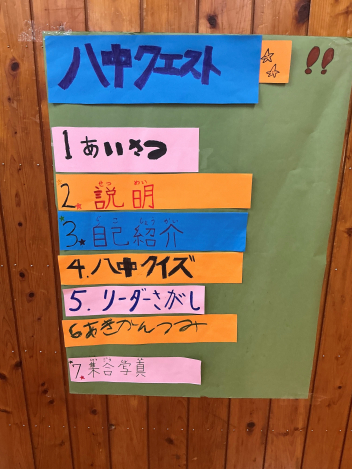 八中クエスト ☆☆ !!
1 あいさつ
2. 説明
せつ めい
3. 自己紹介
じ こ しょう かい
4. 八中クイズ
5. リーダーさがし
6 あきかんつみ
7. 集合写真